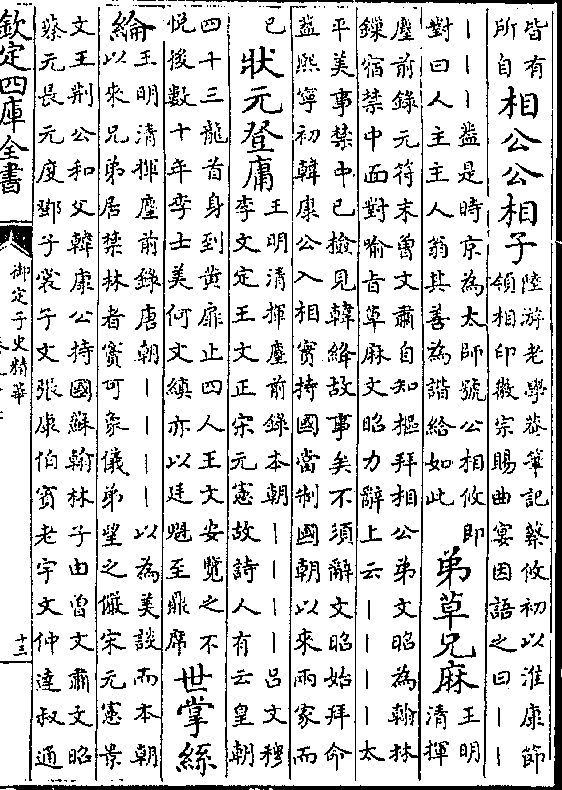 皆有
所自
相公公相子
陸游老學菴筆記蔡攸初以淮康節
領相印徽宗賜曲宴因語之曰｜｜
｜｜｜蓋是時京為太師號公相攸即
對曰人主主人翁其善為諧給如此
弟草兄麻
王明
清揮
麈前錄元符末曾文肅自知樞拜相公弟文昭為翰林
鏁宿禁中面對喻旨草麻文昭力辭上云｜｜｜｜太
平美事禁中已檢見韓絳故事矣不須辭文昭始拜命
蓋熙寧初韓康公入相實持國當制國朝以來兩家而
已
狀元登庸
王明清揮麈前錄本朝｜｜｜｜吕文穆
李文定王文正宋元憲故詩人有云皇朝
四十三龍首身到黄扉止四人王文安覽之不
悦後數十年李士美何文縝亦以廷魁至鼎席
世掌絲
綸
王明清揮麈前錄唐朝｜｜｜｜以為美談而本朝
以來兄弟居禁林者竇可象儀弟望之儼宋元憲景
文王荆公和父韓康公持國蘇翰林子由曾文肅文昭
蔡元長元度鄧子裳子文張康伯賓老宇文仲達叔通
欽定四庫全書
御定子史精華
十三